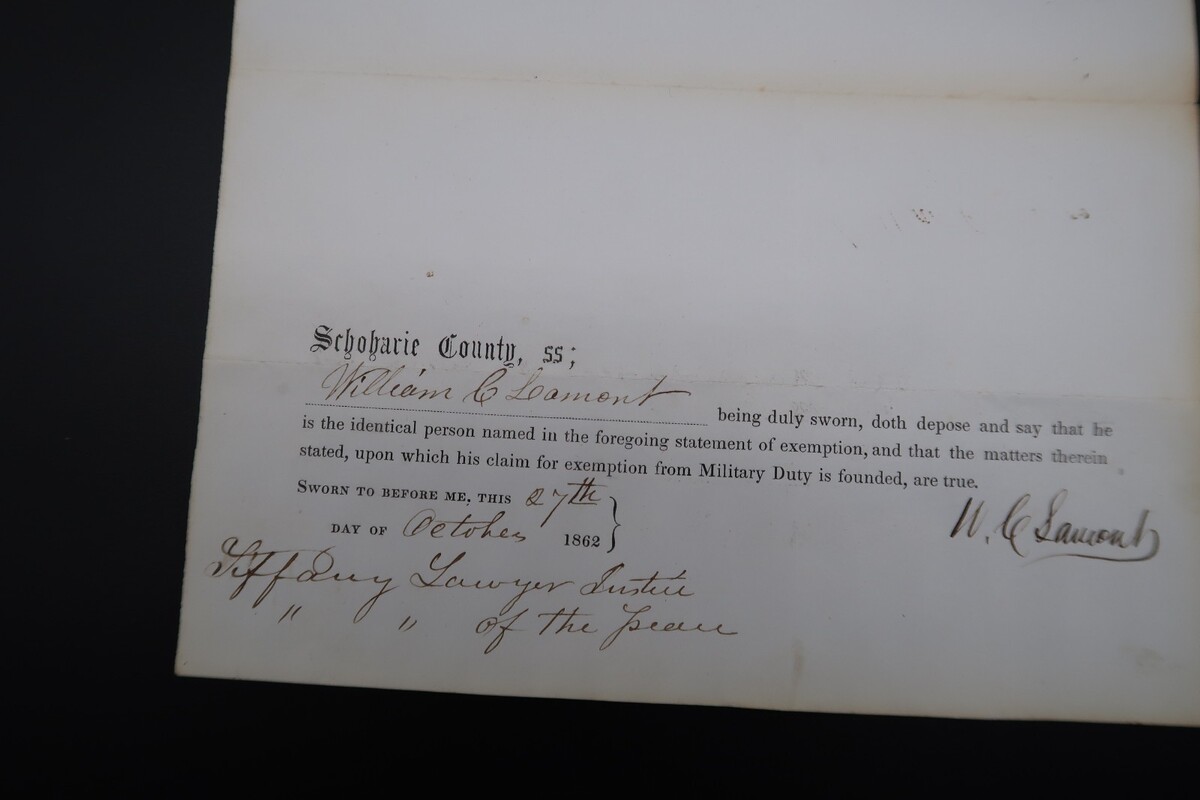 Schoharie County, ss;
William C Lamont being duly sworn, doth depose and say that he
is the identical person named in the foregoing statement of exemption, and that the matters therein
stated, upon which his claim for exemption from Military Duty is founded, are true.
SWORN TO BEFORE ME, THIS 27th
DAY OF October 1862 }
W. C Lamont
Tiffany Lawyer Justice
" " of the Peace